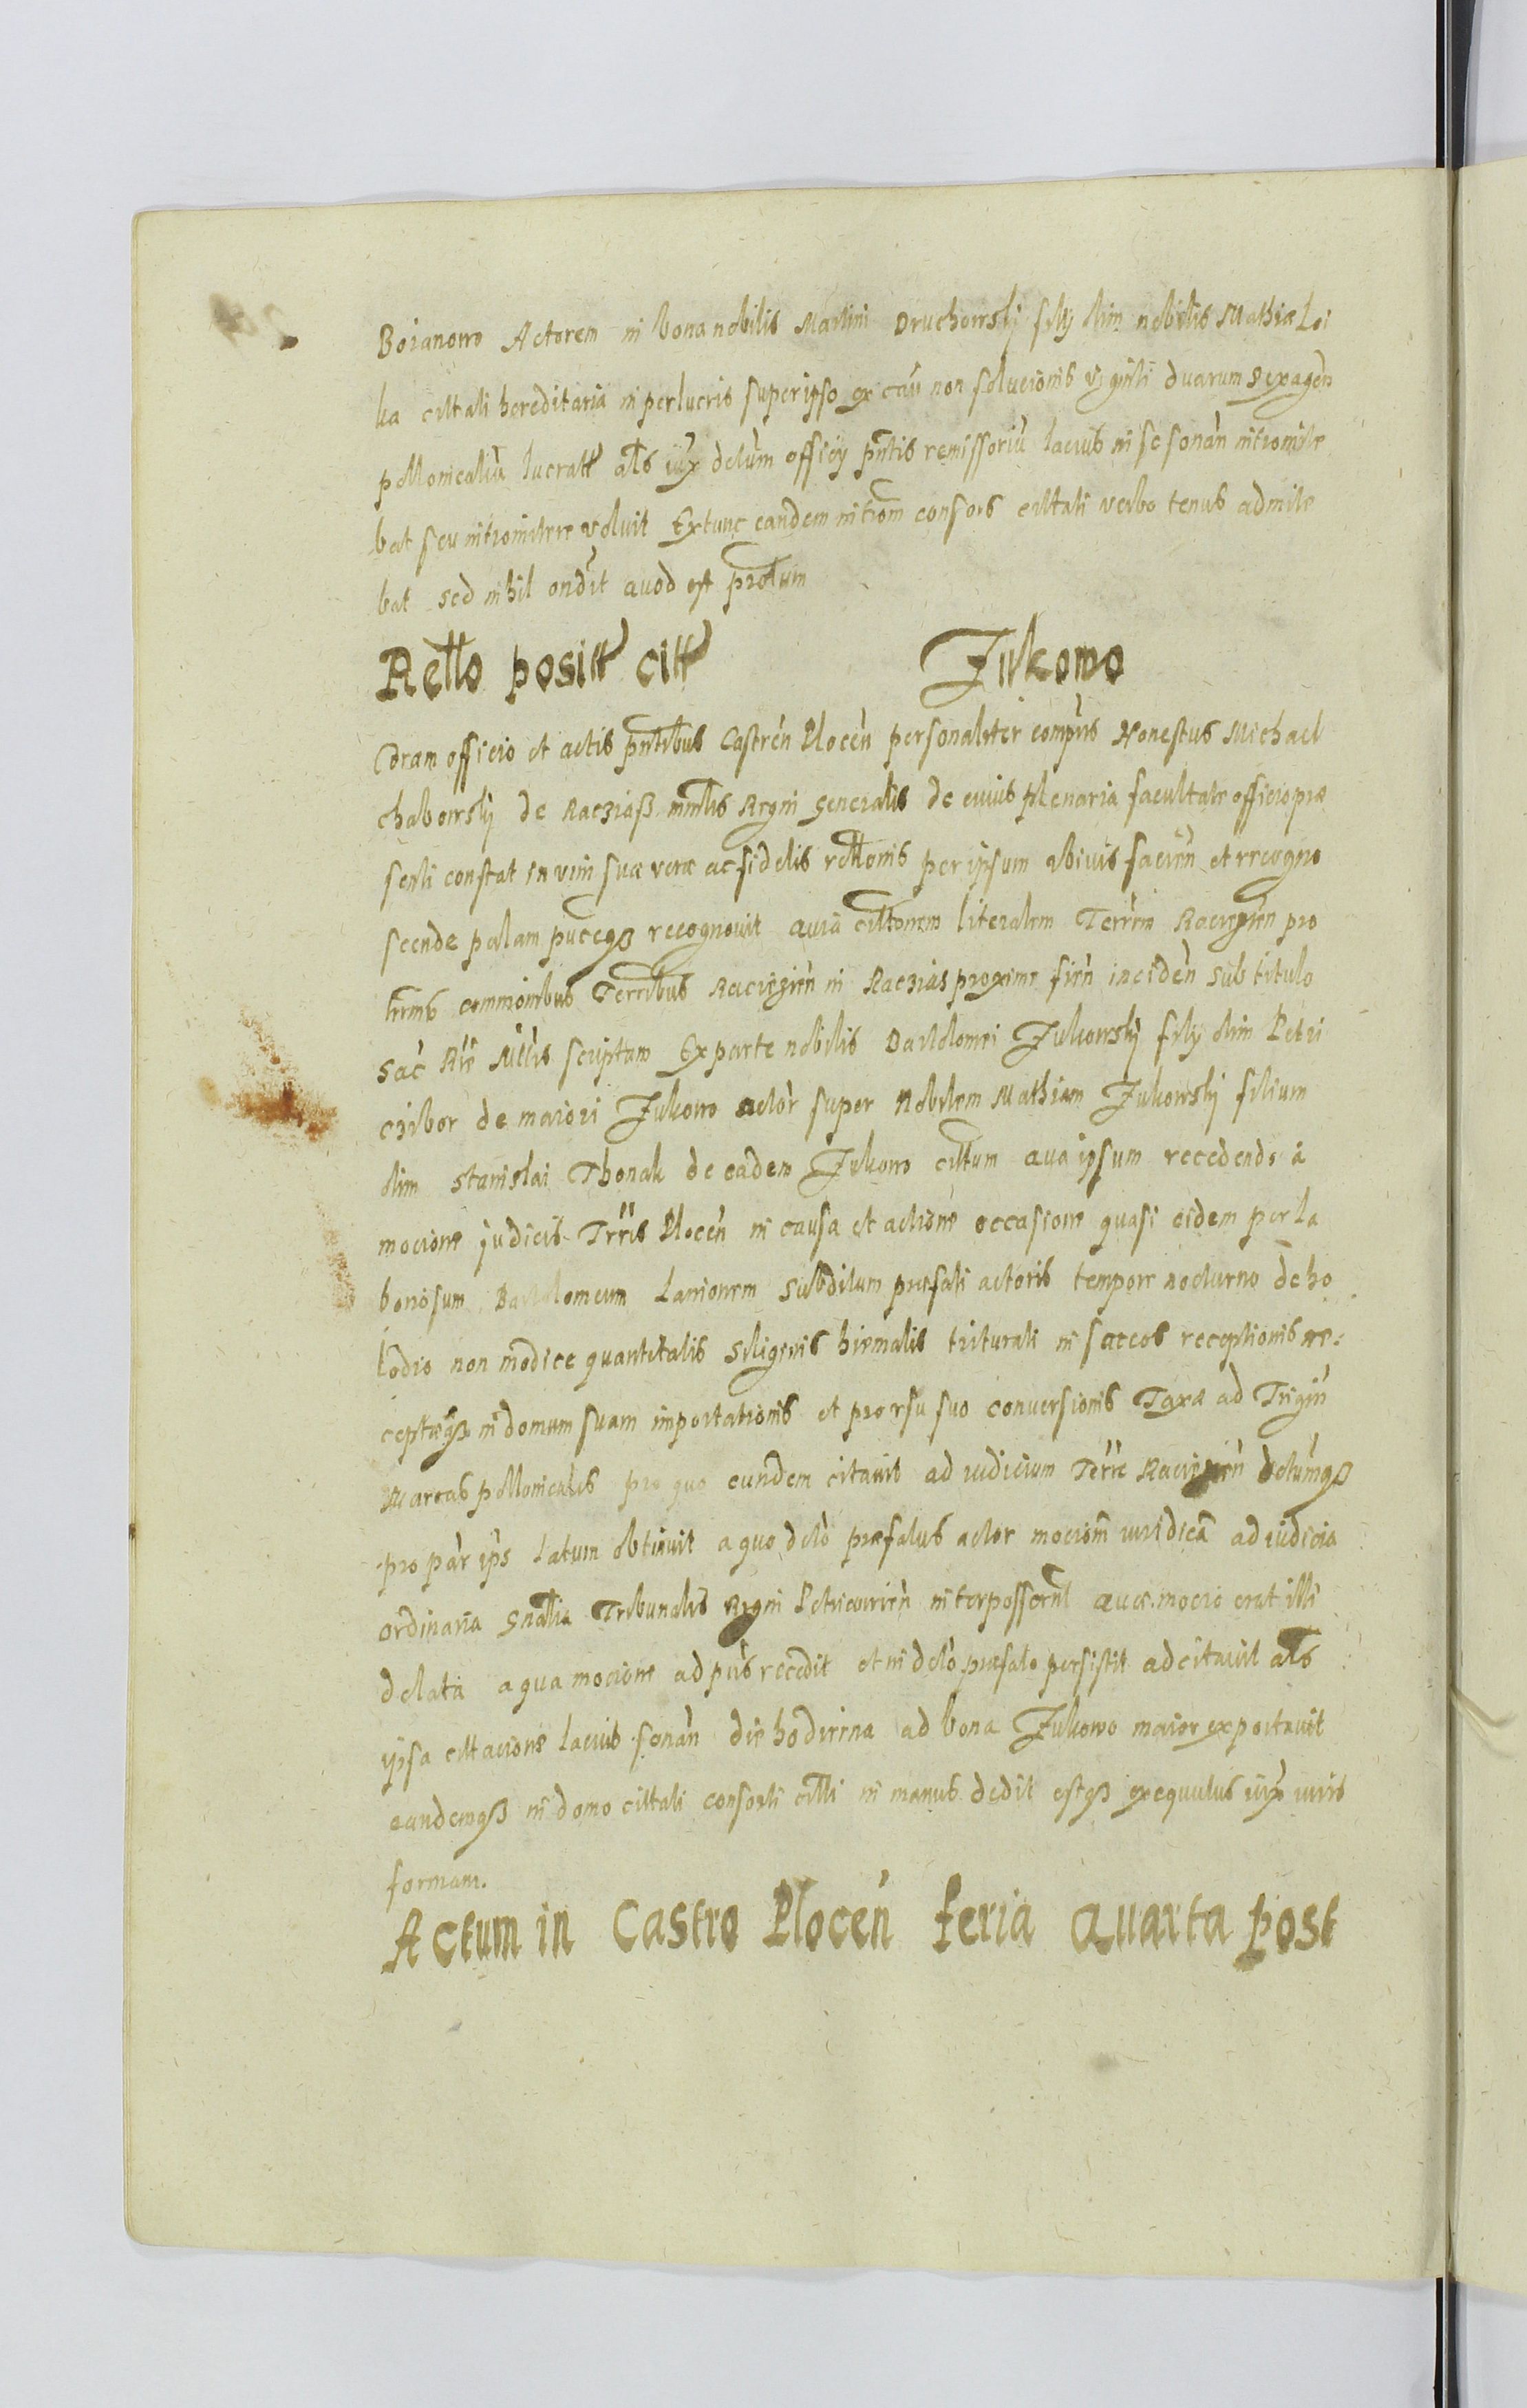 Boianowo Actorem in bona nobilis Martini Druchowskj filij olim nobilis Mathiæ Loi
ka cittati hereditaria in perlucris super ipso ex cau non solucionis viginti duarum sexagen
pollonicaliu lucratt als iux detum officij pntis remissoriu lacius in se sonan intromitte
bat seu intromittere voluit Extunc eandem introm consors cittati verbo tenus admitte
bat sed nihil ondit quod est protum
Rello positt citt Jukowo
Coram officio et actis pntibus Castren Plocen personaliter compns Honestus Michael
chabowskj de Racziaß mnlis Regni Generalis de cuius plenaria facultate officio præ
senti constat In vim suæ veræ ac fidelis rellonis per ipsum obivis facien et recogno
scende palam pucegß recognouit quia cittonem literalem Terrem Raciegien pro
termis conmionibus Terribus Raciegien in Raczias proxime fien inciden sub titulo
Sac Rie Mttis scriptam Ex parte nobilis Bartolomei Jukowskj filij olim Petri
czibor de maiori Jukowo actor super Nobilem Mathiam Jukowskj filium
olim Stanislai Thonak de eadem Jukowo cittum qua ipsum recedendo à
mocione judicis Trris Plocen in causa et actione occasione quasi eidem per la
boriosum Bartolomeum Lanionem Subditum præfati actoris tempore nocturno de ho
lodio non modice quantitatis Siliginis hiemalis triturati in saccos receptionis re:
ceptægß in domum suam importationis et pro rsu suo conuersionis Taxæ ad Trigin
Marcas pollonicales pro quo eundem citauit ad iudicium Terre Raciegien detumgß
pro par ips latum obtinuit a quo deto præfatus actor mociom iuridica ad iudicia
ordinaria Gnalia Tribunalis Regni Petricouien interpossernt quæ mocio erat illi
delata a qua mocione ad pns recedit et in deto præfato persistit adcitauit als
ipsa cittacione lacius sonan die hodierna ad bona Jukowo maior exportauit
eandemgß in domo cittati consorti citti in manus dedit estgß exequutus iux iuris
formam.
Actum in Castro Plocen feria Quarta post